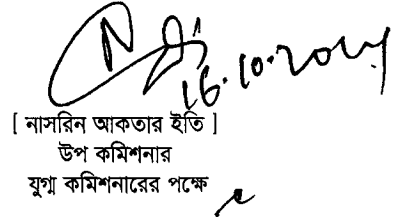 16.10.2024
[ নাসরিন আকতার ইতি ]
উপ কমিশনার
যুগ্ম কমিশনারের পক্ষে